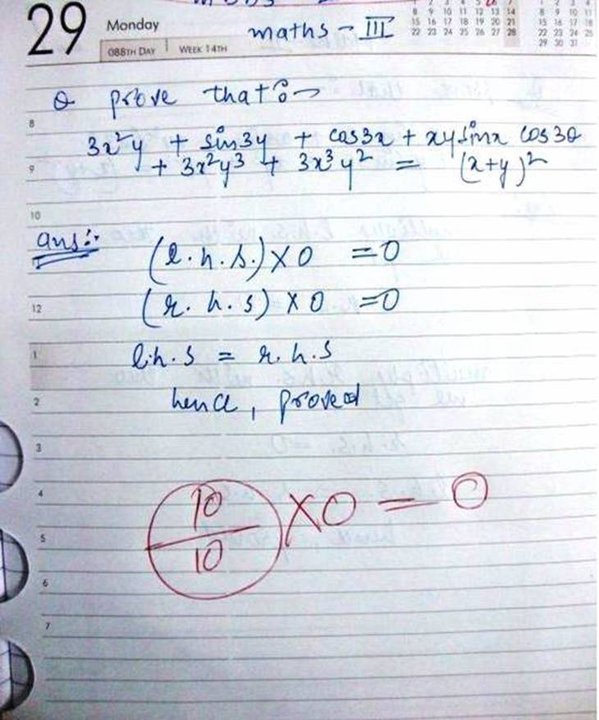 29 Monday
088TH DAY WEEK 14TH
8 9 10 11 12 13 14
15 16 17 18 19 20 21
22 23 24 25 26 27 28
8 9 10 11
15 16 17 18
22 23 24 25
29 30 31
maths - III
Q prove that :-
8
3x²y + sin3y + cos3x + xysinx cos3θ
9
+ 3x²y³ + 3x³y² = (x+y)²
10
ans:-
(l.h.s.) X 0 = 0
12
(r.h.s) X 0 = 0
1
l.h.s = r.h.s
2
hence, proved
3
4
10/10 X 0 = 0
5
6
7